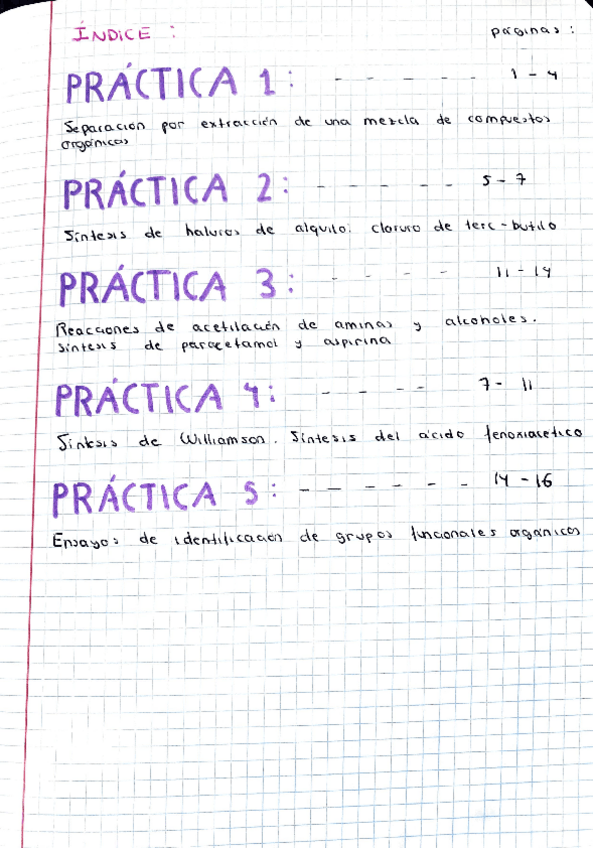 ÍNDICE : páginas :
PRÁCTICA 1: - - - - - 1 - 4
Separación por extracción de una mezcla de compuestos
orgánicos
PRÁCTICA 2: - - - - - 5 - 7
Síntesis de haluros de alquilo: cloruro de terc-butilo
PRÁCTICA 3: - - - - 11 - 14
Reacciones de acetilación de aminas y alcoholes.
síntesis de paracetamol y aspirina
PRÁCTICA 4: - - - - 7 - 11
Síntesis de Williamson. Síntesis del ácido fenoxiacético
PRÁCTICA 5: - - - - - - 14 - 16
Ensayos de identificación de grupos funcionales orgánicos